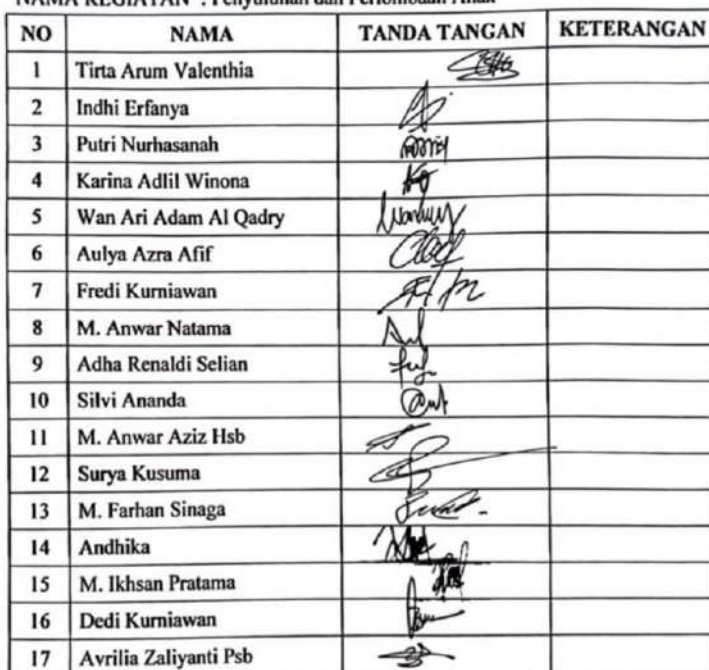 NAMA KEGIATAN : Penyuluhan dan Perlombaan Anak
NO NAMA TANDA TANGAN KETERANGAN
1 Tirta Arum Valenthia
2 Indhi Erfanya
3 Putri Nurhasanah
4 Karina Adlil Winona
5 Wan Ari Adam Al Qadry
6 Aulya Azra Afif
7 Fredi Kurniawan
8 M. Anwar Natama
9 Adha Renaldi Selian
10 Silvi Ananda
11 M. Anwar Aziz Hsb
12 Surya Kusuma
13 M. Farhan Sinaga
14 Andhika
15 M. Ikhsan Pratama
16 Dedi Kurniawan
17 Avrilia Zaliyanti Psb